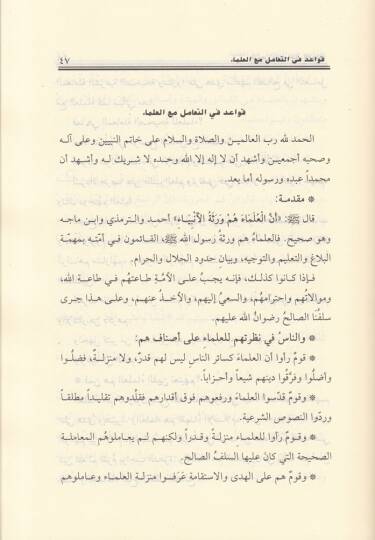 قواعد في التعامل مع العلماء ٤٧
قواعد في التعامل مع العلماء
الحمد لله رب العالمين والصلاة والسلام على خاتم النبيين وعلى آله
وصحبه أجمعين وأشهد أن لا إله إلا الله وحده لا شريك له وأشهد أن
محمداً عبده ورسوله أما بعد.
* مقدمة:
قال ﷺ: «أَنَّ الْعُلَمَاءَ هُمْ وَرَثَةُ الأَنْبِيَاءِ» أحمد والترمذي وابن ماجه
وهو صحيح. فالعلماءُ هم ورثةُ رسول الله ﷺ، القائمون في أمّته بمهمّة
البلاغ والتعليم والتوجيه، وبيانِ حدود الحلال والحرام.
فإذا كانوا كذلك، فإنه يجبُ على الأمّةِ طاعتُهم في طاعة الله،
وموالاتُهم واحترامُهم، والسعيُ إليهم، والأخذُ عنهم، وعلى هذا جرى
سلفُنا الصالحُ رضوانُ الله عليهم.
* والناسُ في نظرتهم للعلماءِ على أصناف هم:
* قومٌ رأوا أن العلماءَ كسائر الناس ليس لهم قدرٌ، ولا منزلةٌ، فضلُّوا
وأضلُّوا وفرَّقُوا دينهم شيعاً وأحزاباً.
* وقومٌ قدّسوا العلماءَ ورفعوهم فوق أقدارهم فقلَّدوهم تقليداً مطلقاً
وردّوا النصوص الشرعية.
* وقومٌ رأوا للعلماء منزلةً وقدراً ولكنهم لم يعاملوهُم المعاملة
الصحيحة التي كان عليها السلفُ الصالح.
* وقومٌ هم على الهدى والاستقامةِ عَرَفُوا منزلة العلماء وعاملوهم